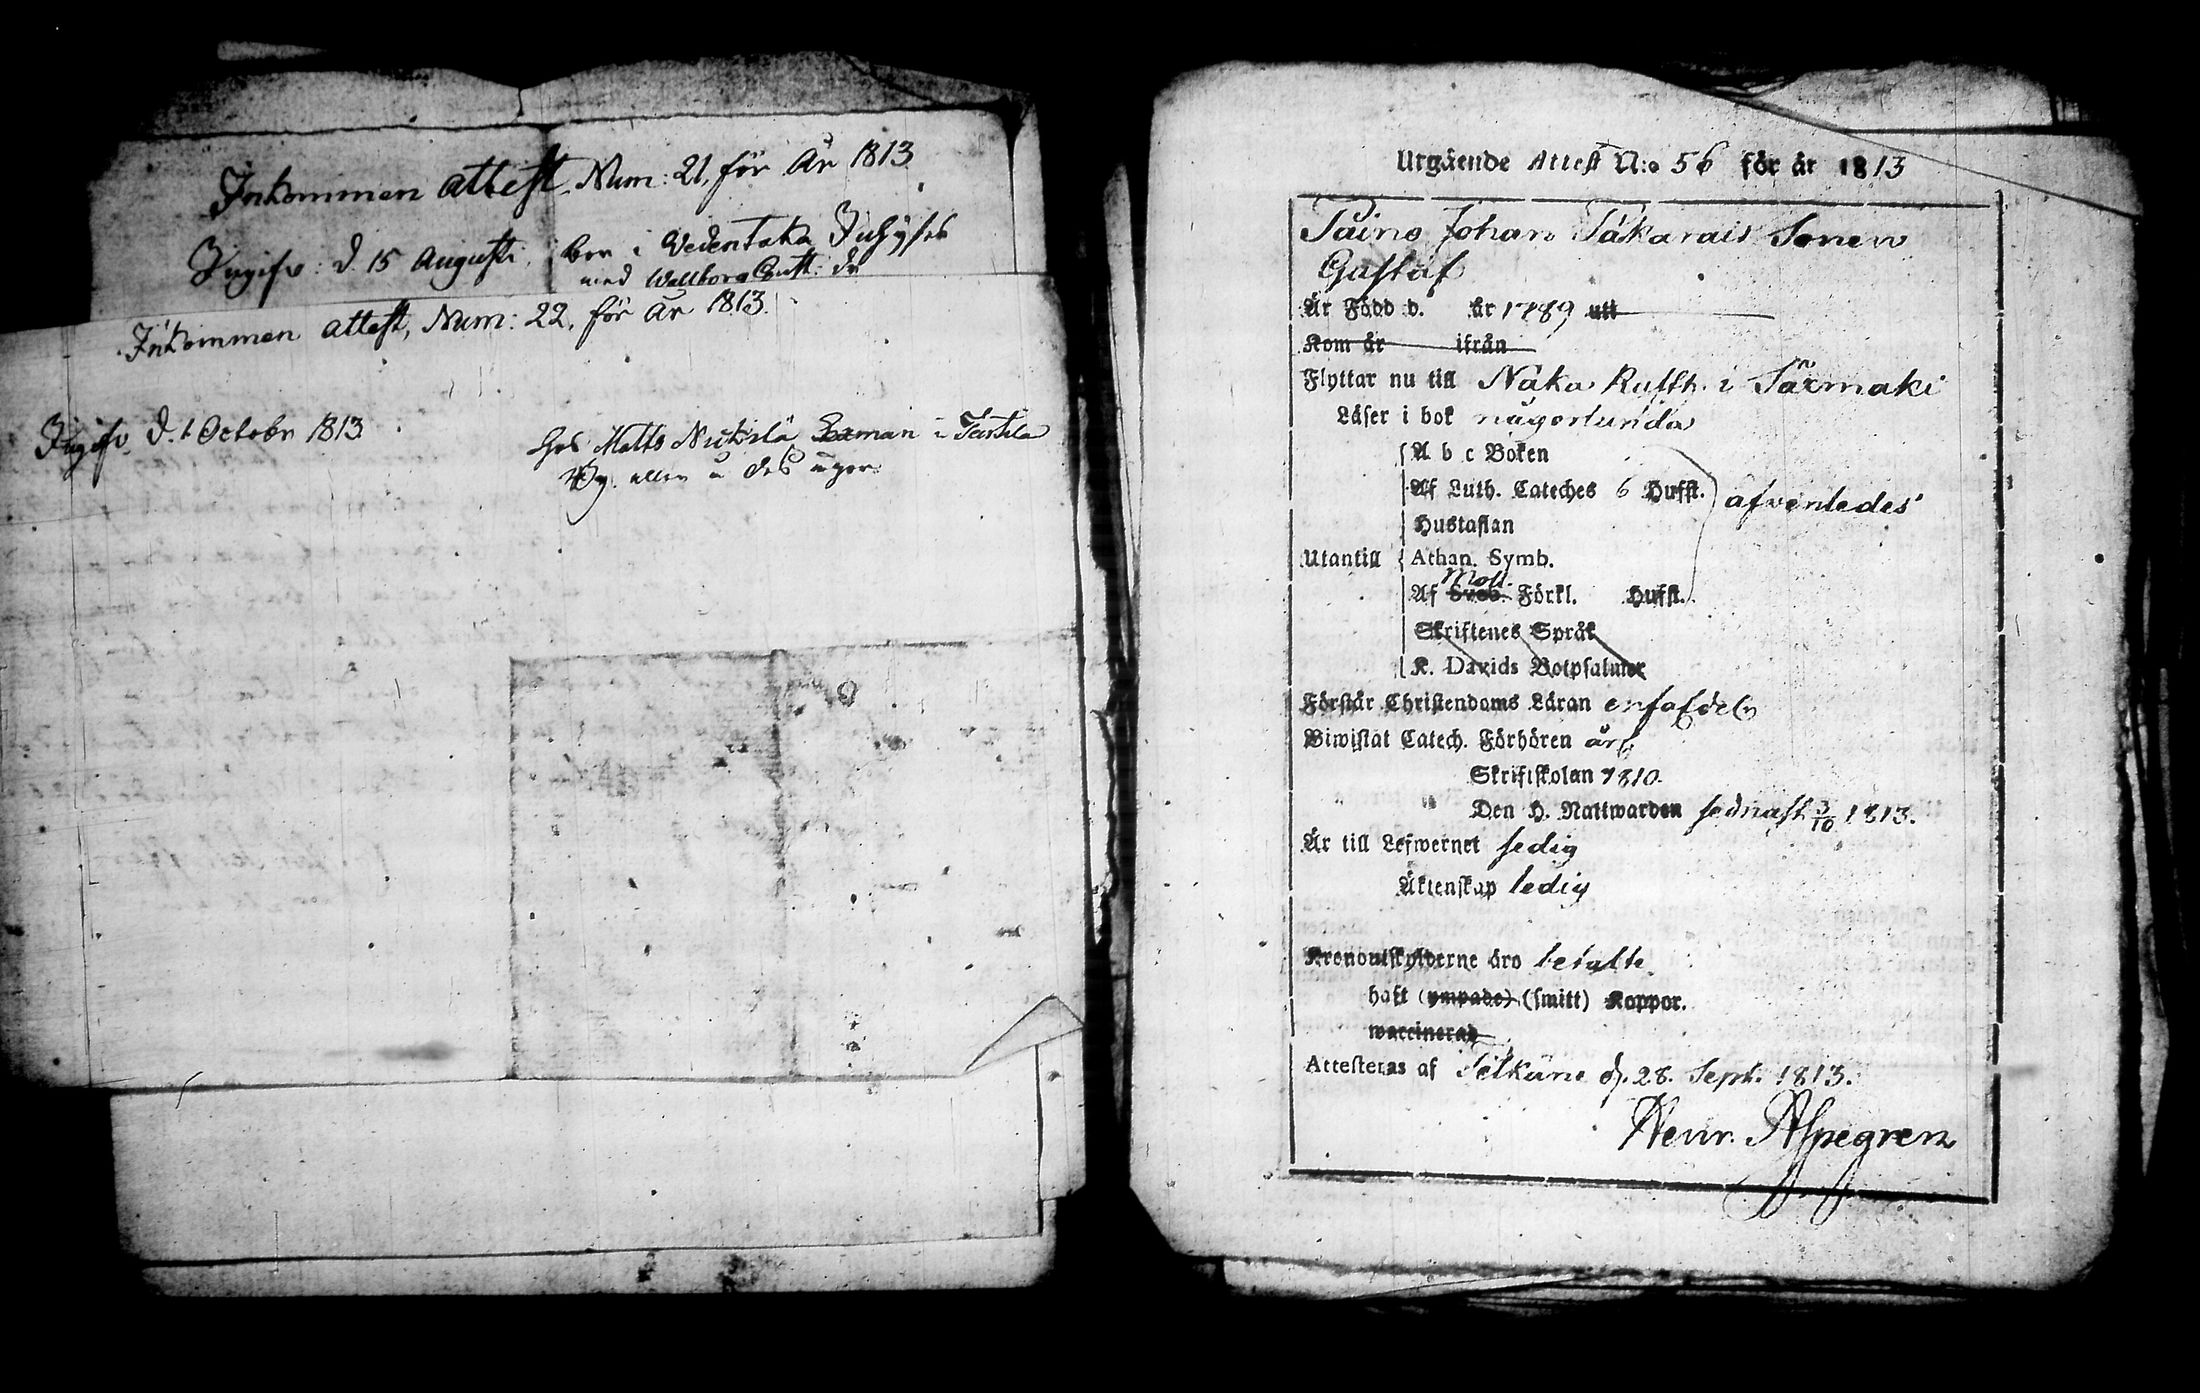 Inkommen attest Num: 21. för År 1813
Ingifv: d. 15 Augusti. bor i Vedentaka
med Wallborg Gust: dr
Inkommen attest, Num: 22. för År 1813.
Ingifv. d. 1 Octobr 1813
hos Matts Nickilä Boman i
Utgående Attest N:o 56 för år 1813
Paino Johan Säkarais Sonen
Gustaf
Är Född d. år 1789 utt
Kom år ifrån
Flyttar nu till Näka Rusth. i Särmaki
Läser i bok någorlunda
A b c Boken
Af Luth. Cateches 6 Hufst. afvenledes
Hustaflan
Utantill Athan. Symb.
Af Sveb. Moll. Förkl. Hufst.
Skriftenes Språk
K. Davids Botpsalmer
Förstår Christendoms Läran enfaldel.
Biwistat Catech. Förhören årl.
Skriftskolan 1810.
Den H. Nattwarden sednast 3/10 1813.
Är till Lefwernet sedig
Äktenskap ledig
Kronoutskylderne äro betalte
haft (ympade) (smitt) Koppor.
waccinerad
Attesteras af Sälkäne d. 28. Sept. 1813.
Henr. Aspegren